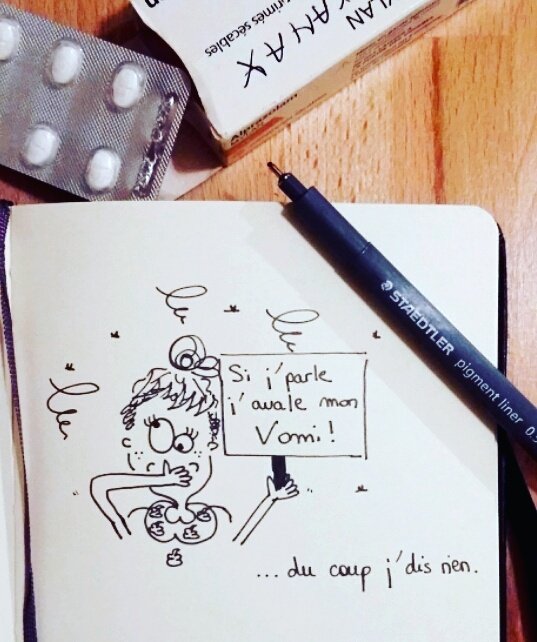 XANAX
comprimés sécables
Alprazolam
STAEDTLER
pigment liner 0.
Si j'parle
j'avale mon
Vomi !
...du coup j'dis rien.